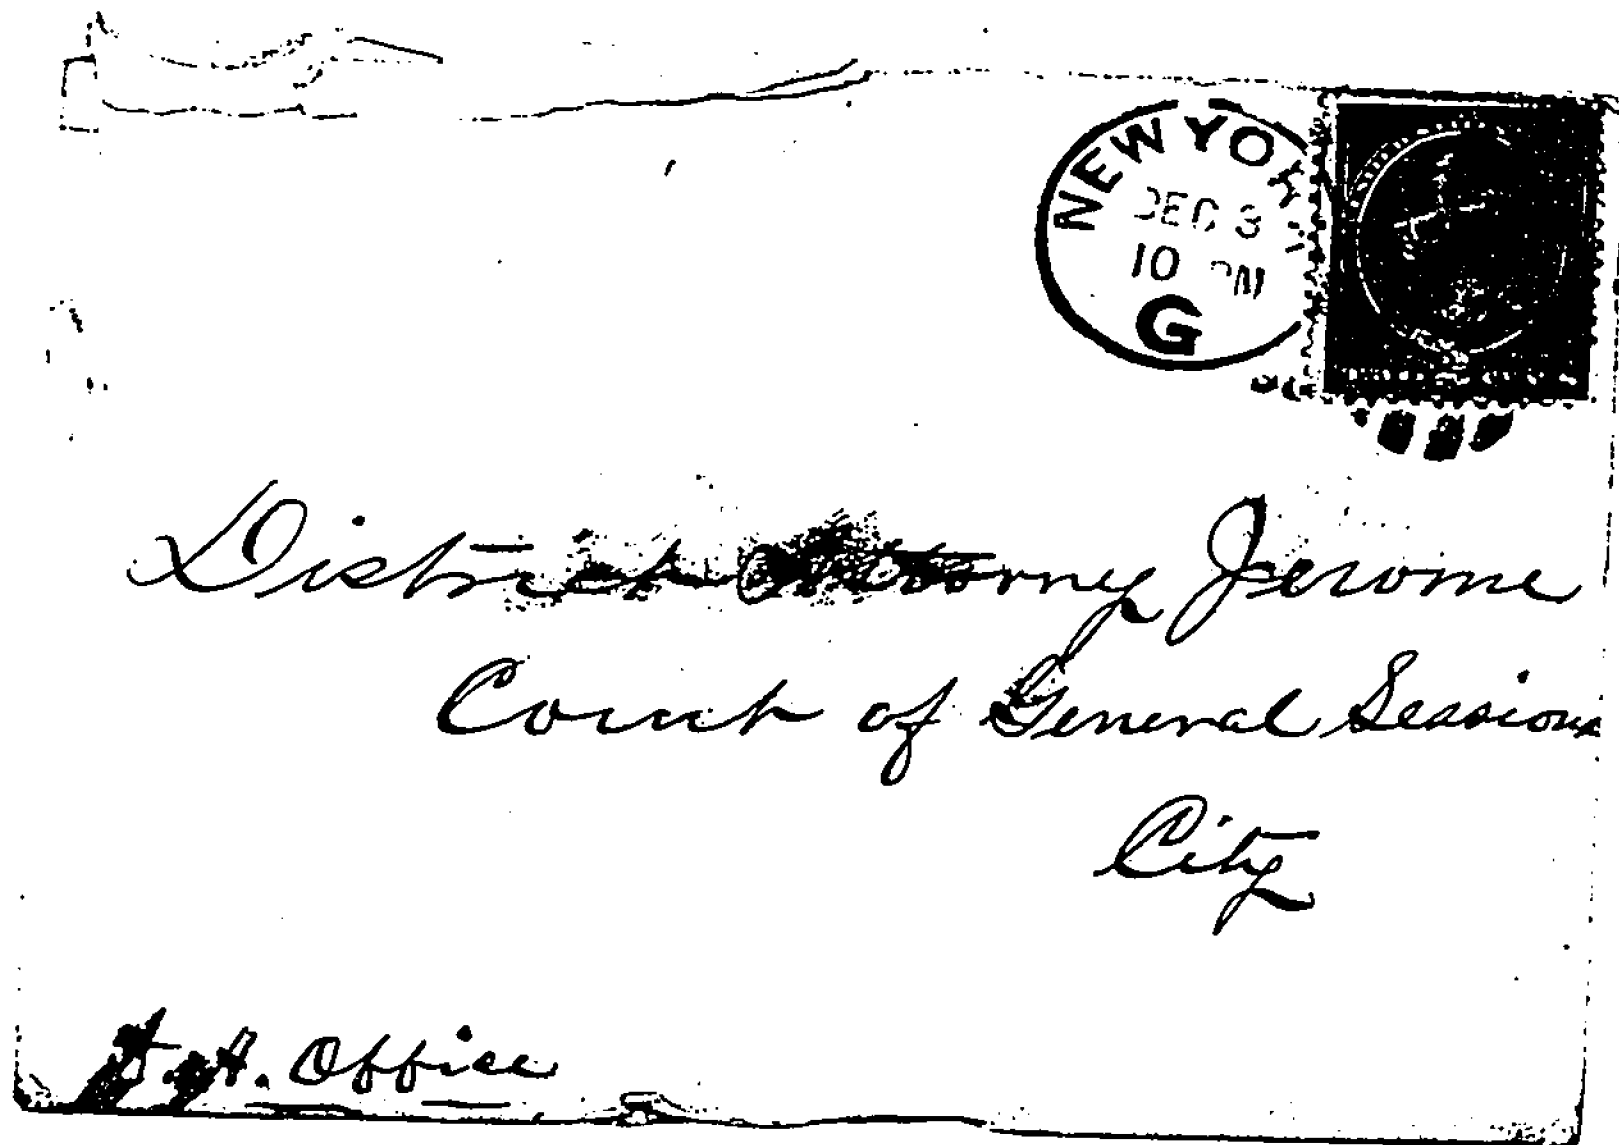 NEW YORK
DEC 3
10 PM
G
District Attorney Jerome
Court of General Sessions
City
A. Office